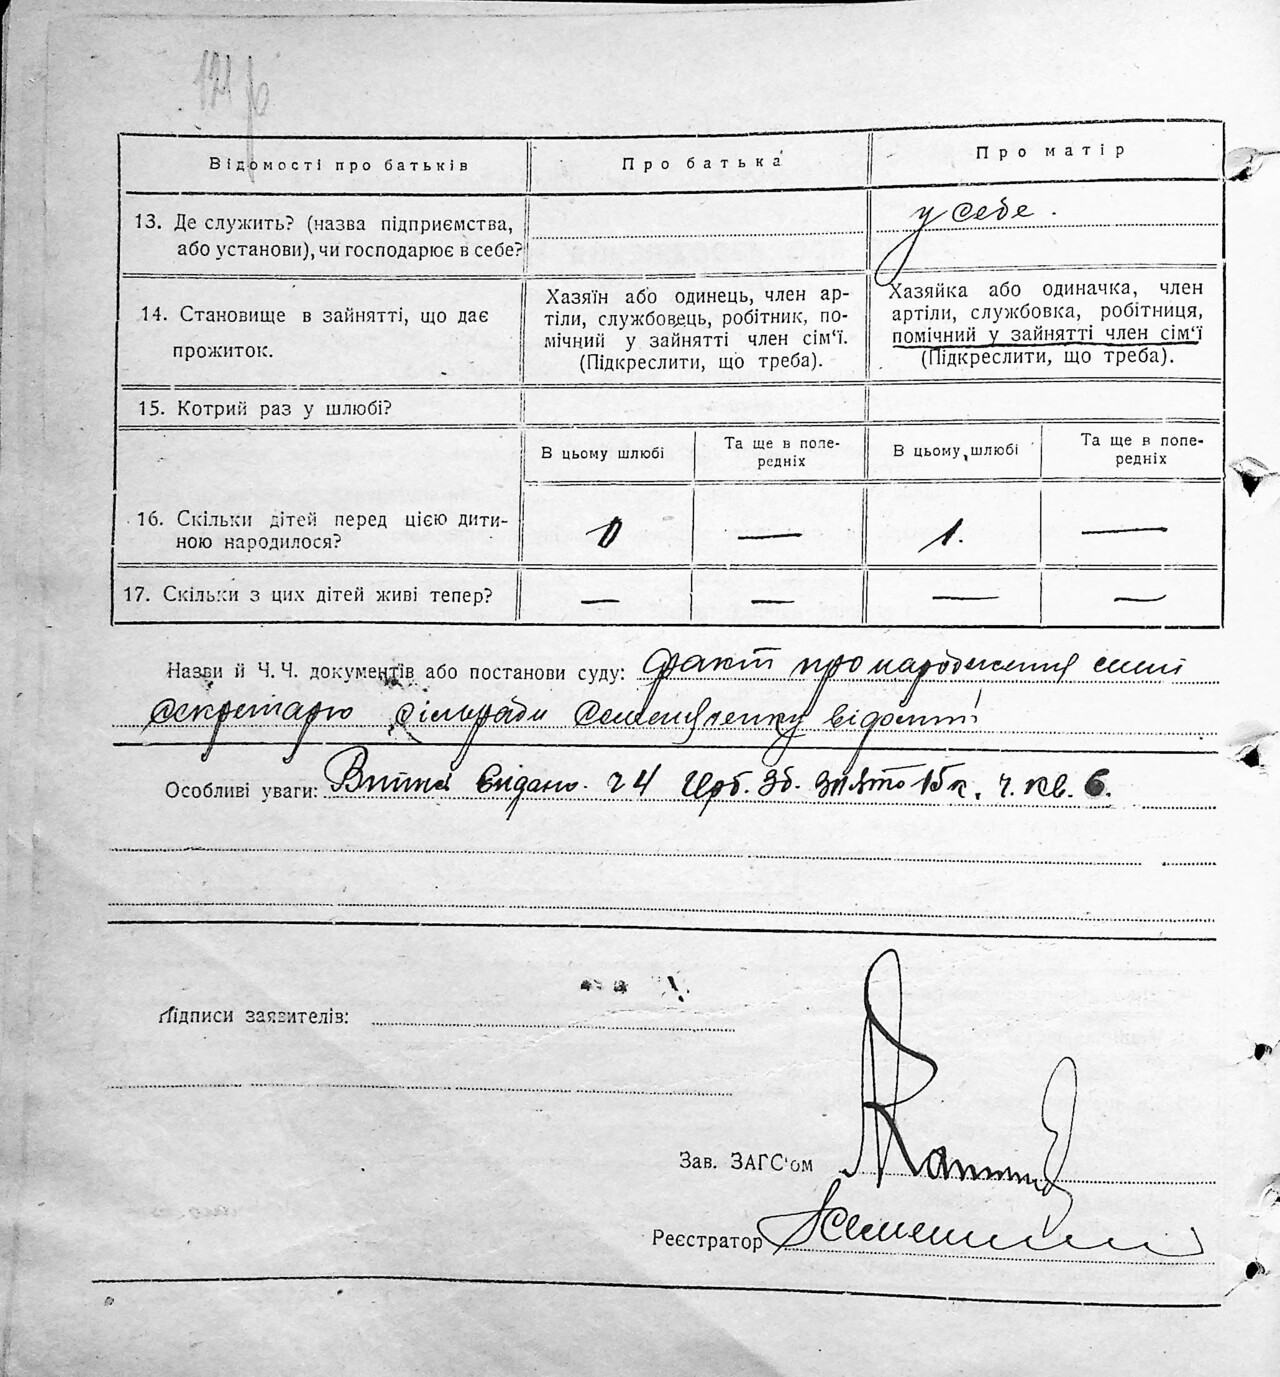 121 р
Відомості про батьків
Про батька
Про матір
13. Де служить? (назва підприємства,
або установи), чи господарює в себе?
у себе.
14. Становище в зайнятті, що дає
прожиток.
Хазяїн або одинець, член ар-
тіли, службовець, робітник, по-
мічний у зайнятті член сім'ї.
(Підкреслити, що треба).
Хазяйка або одиначка, член
артіли, службовка, робітниця,
помічний у зайнятті член сім'ї
(Підкреслити, що треба).
15. Котрий раз у шлюбі?
В цьому шлюбі
Та ще в попе-
редніх
В цьому шлюбі
Та ще в попе-
редніх
16. Скільки дітей перед цією дити-
ною народилося?
0 — 1. —
17. Скільки з цих дітей живі тепер?
— — — —
Назви й Ч. Ч. документів або постанови суду: факт про народження
секретарю сільради Семенченку відомий
Особливі уваги: видано. ч 4 Зб. знято 15 к. ч. кв. 6.
Підписи заявителів:
Зав. ЗАГС'ом
Реєстратор